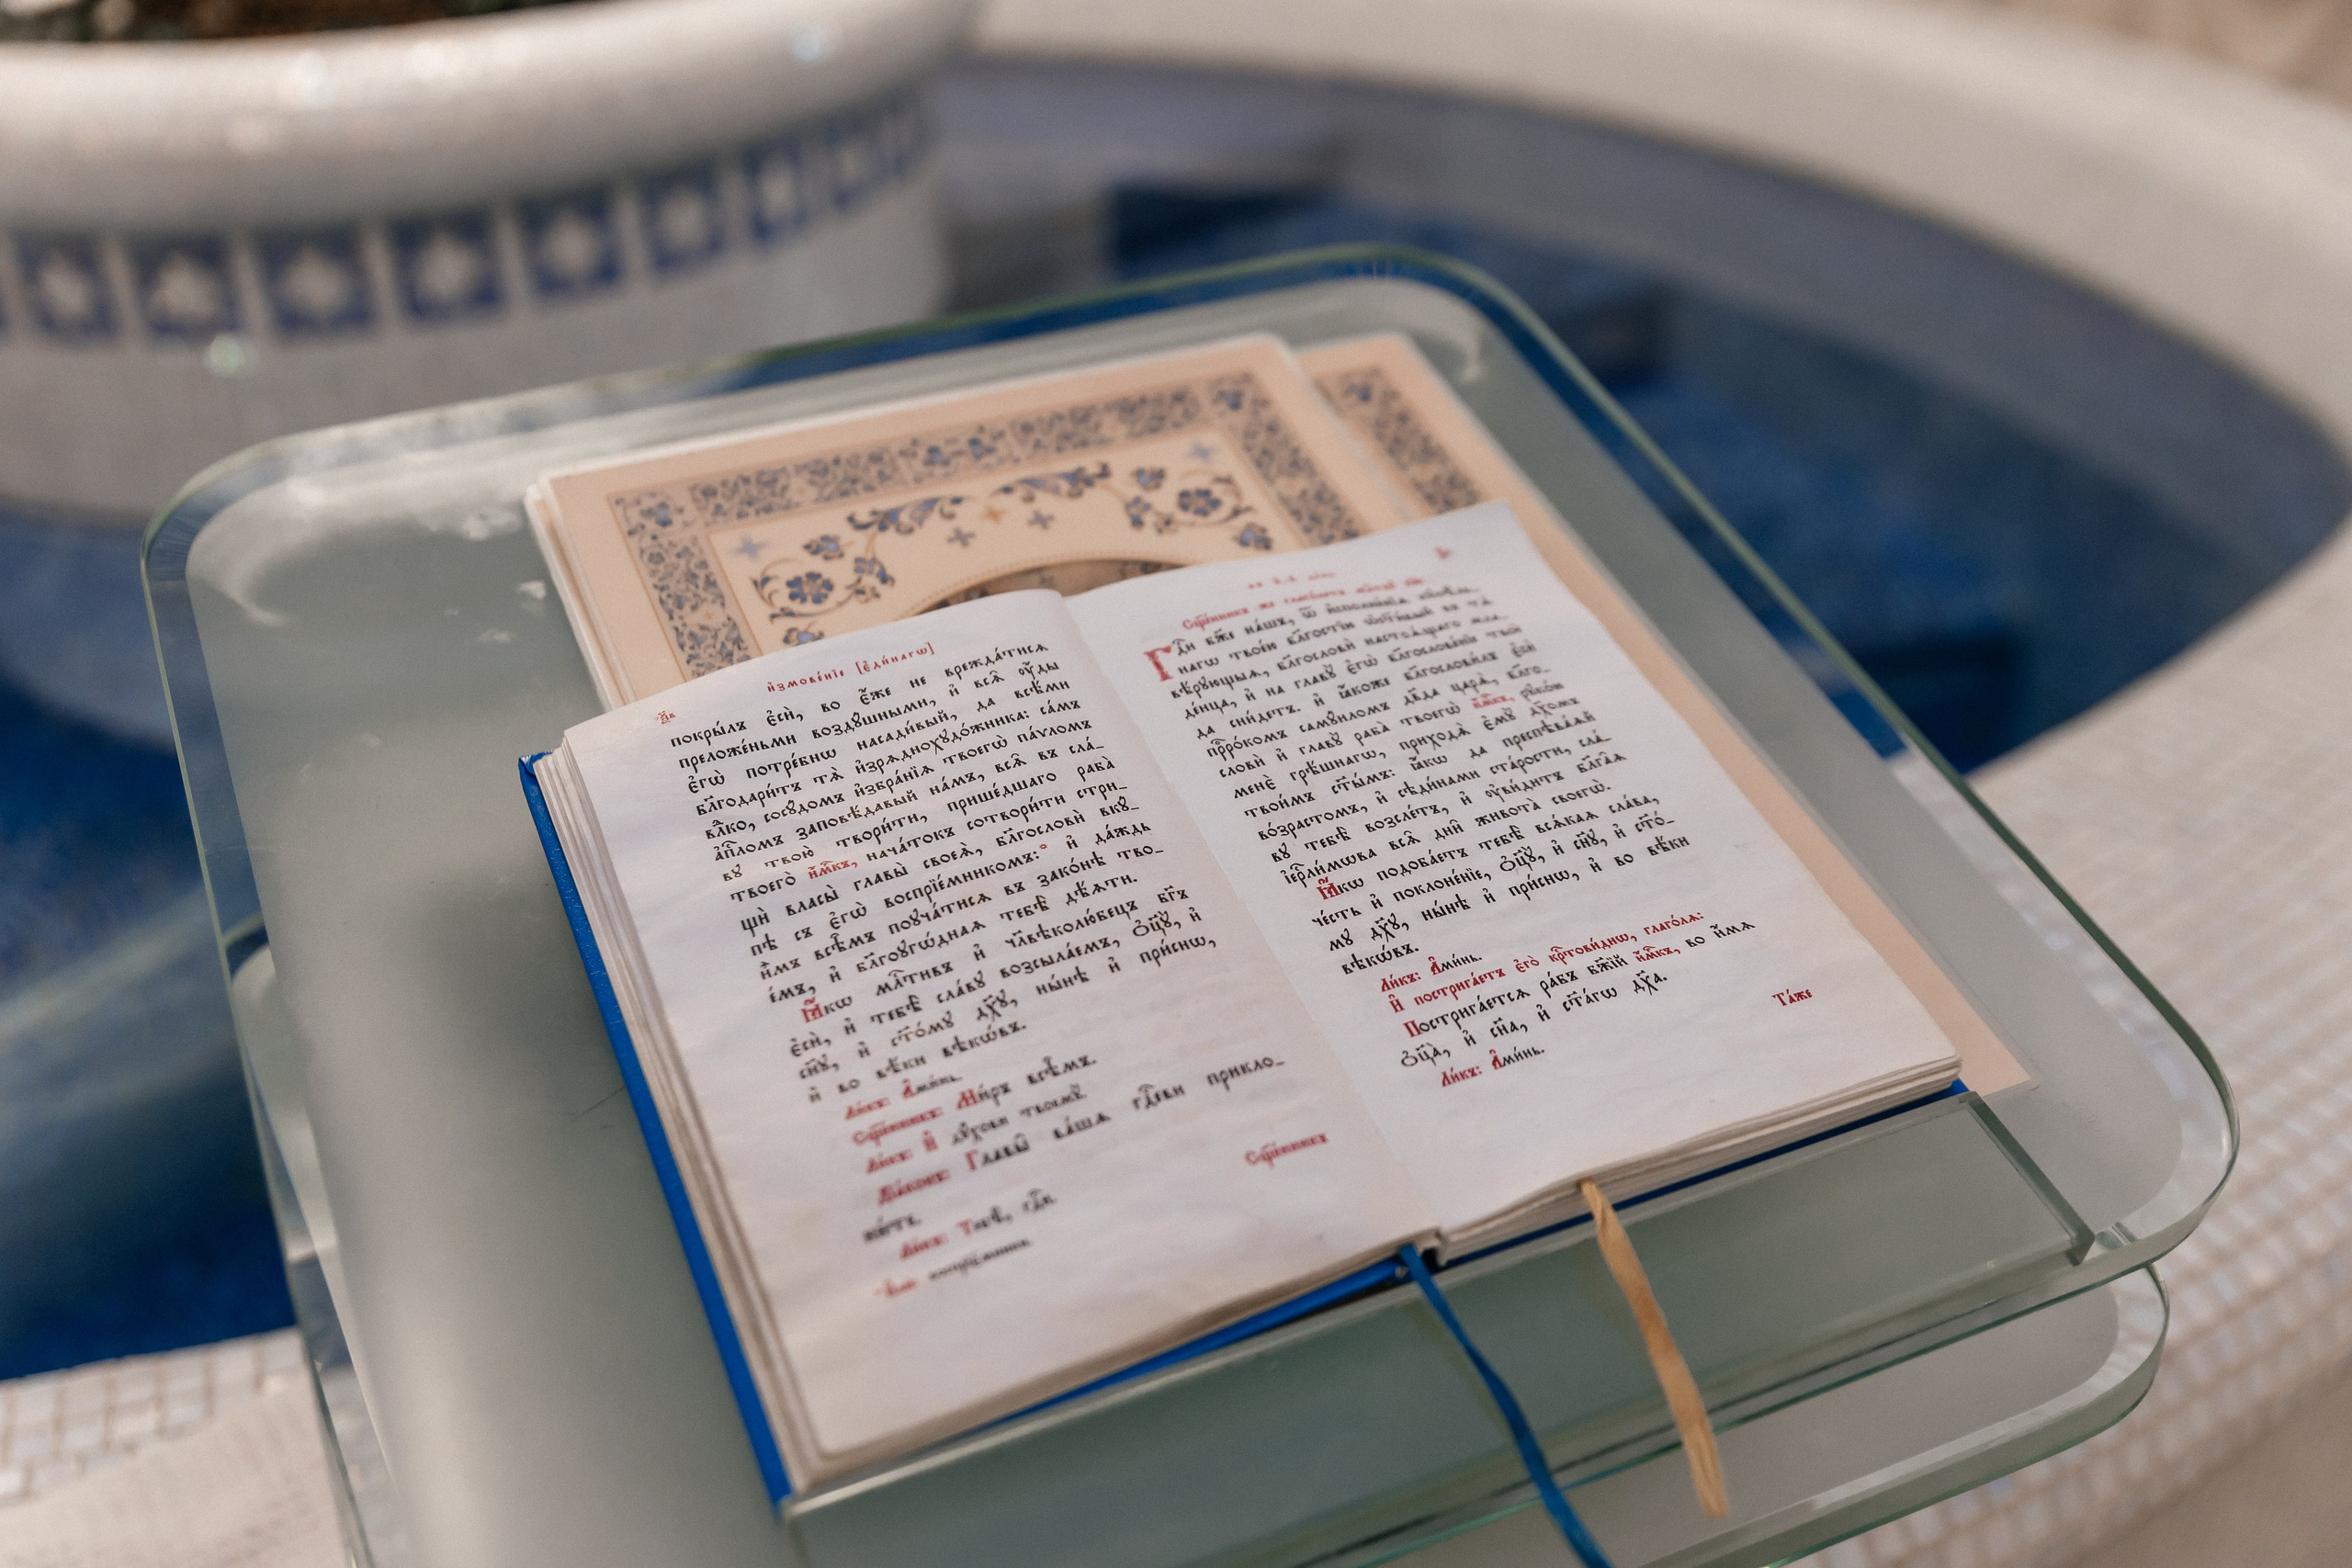 и҆змове́нїе [є҆ди́нагѡ]
покры́лъ є҆сѝ, во є҆́же не врежда́тисѧ
преложе́ньми воздꙋ́шными, и҆ всѧ̑ ᲂу҆́ды
є҆гѡ̀ потре́бнѡ насади́вый, да всѣ́ми
благодари́тъ тѧ̀ и҆зрѧднохꙋдо́жника: са́мъ
вл҃ко, сосꙋ́домъ и҆збра́нїѧ твоегѡ̀ па́ѵломъ
а҆пⷭ҇ломъ заповѣ́давый на́мъ, всѧ̑ въ сла́-
вꙋ твою̀ твори́ти, прише́дшаго раба̀
твоего̀ и҆́мⷬ҇къ, нача́токъ сотвори́ти стри-
щѝ власы̀ главы̀ своеѧ̀, благословѝ вкꙋ́-
пѣ съ є҆гѡ̀ воспрїе́мникомъ:° и҆ да́ждь
и҆̀мъ всѣ̑мъ поᲂуча́тисѧ въ зако́нѣ тво-
е́мъ, и҆ бл҃гоᲂуго́днаѧ тебѣ̀ дѣ́ѧти.
Ꙗ҆́кѡ млⷭ҇тивъ и҆ чл҃вѣколю́бецъ бг҃ъ
є҆сѝ, и҆ тебѣ̀ сла́вꙋ возсыла́емъ, ѻ҆ц҃ꙋ̀, и҆
сн҃ꙋ, и҆ ст҃о́мꙋ дх҃ꙋ, ны́нѣ и҆ при́снѡ,
и҆ во вѣ́ки вѣкѡ́въ.
Ли́къ: А҆ми́нь.
Сщ҃е́нникъ: Ми́ръ всѣ̑мъ.
Ли́къ: И҆ дꙋ́хови твоемꙋ̀.
Дїа́конъ: Главы̑ ва́шѧ гдⷭ҇еви прикло-
ни́те.
Ли́къ: Тебѣ̀, гдⷭ҇и.
Сщ҃е́нникъ
Гдⷭ҇и бж҃е на́шъ, ѿ и҆сполне́нїѧ
нагѡ твое́ю бл҃гостїю
вѣ́рꙋющыѧ, благословѝ настоѧ́щаго мла-
де́нца, и҆ на главꙋ̀ є҆гѡ̀ благослове́нїе твоѐ
да сни́детъ. и҆ ꙗ҆́коже благослови́лъ є҆сѝ
прⷪ҇ро́комъ самꙋи́ломъ дв҃да царѧ̀, благо-
словѝ и҆ главꙋ̀ раба̀ твоегѡ̀ и҆́мⷬ҇къ, рꙋко́ю
менє̀ грѣ́шнагѡ, приходѧ̀ є҆мꙋ̀ дх҃омъ
твои́мъ ст҃ы́мъ: ꙗ҆́кѡ да преспѣва́ѧй
во́зрастомъ, и҆ сѣди́нами ста́рости, сла́-
вꙋ тебѣ̀ возсле́тъ, и҆ ᲂу҆ви́дитъ бл҃га̑ѧ
і҆ерⷭ҇ли́мѡва всѧ̑ дни̑ живота̀ своегѡ̀.
Ꙗ҆́кѡ подоба́етъ тебѣ̀ всѧ́каѧ сла́ва,
че́сть и҆ поклоне́нїе, ѻ҆ц҃ꙋ̀, и҆ сн҃ꙋ, и҆ ст҃о́-
мꙋ дх҃ꙋ, ны́нѣ и҆ при́снѡ, и҆ во вѣ́ки
вѣкѡ́въ.
Ли́къ: А҆ми́нь.
И҆ постриза́етъ є҆го̀ крⷭ҇тови́днѡ, глаго́лѧ:
Постриза́етсѧ ра́бъ бж҃їй и҆́мⷬ҇къ, во и҆́мѧ
ѻ҆ц҃а̀, и҆ сн҃а, и҆ ст҃а́гѡ дх҃а.
Ли́къ: А҆ми́нь.
Та́же